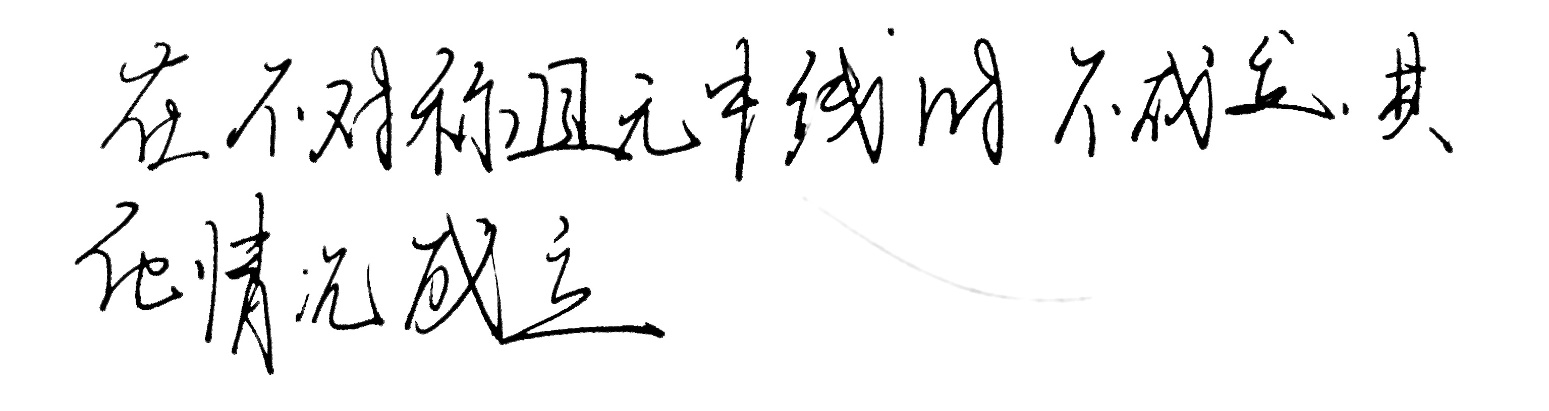 在不对称且无中线时不成立.其
他情况成立